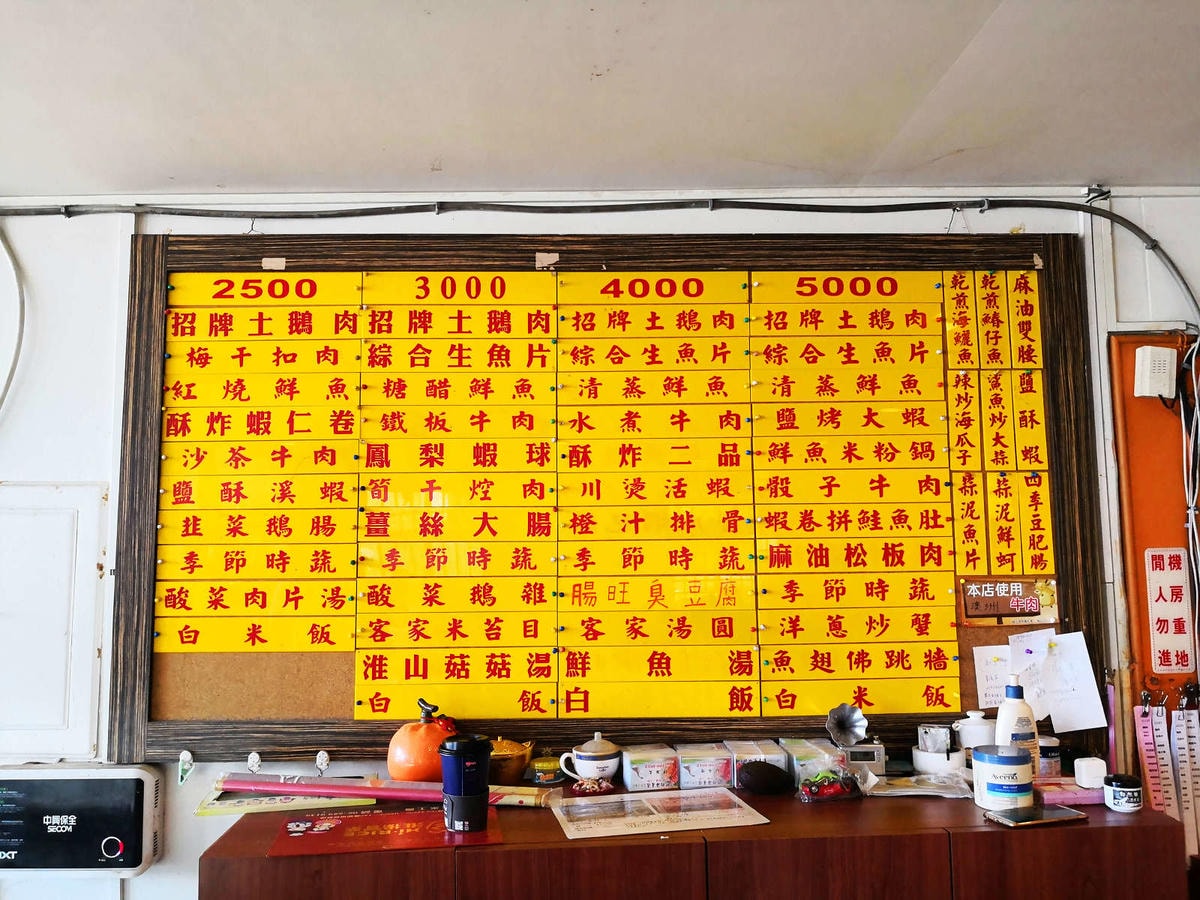 2500
招牌土鵝肉
梅干扣肉
紅燒鮮魚
酥炸蝦仁卷
沙茶牛肉
鹽酥溪蝦
韭菜鵝腸
季節時蔬
酸菜肉片湯
白米飯
3000
招牌土鵝肉
綜合生魚片
糖醋鮮魚
鐵板牛肉
鳳梨蝦球
筍干焢肉
薑絲大腸
季節時蔬
酸菜鵝雜
客家米苔目
淮山菇菇湯
白飯
4000
招牌土鵝肉
綜合生魚片
清蒸鮮魚
水煮牛肉
酥炸二品
川燙活蝦
橙汁排骨
季節時蔬
腸旺臭豆腐
客家湯圓
鮮魚湯
白飯
5000
招牌土鵝肉
綜合生魚片
清蒸鮮魚
鹽烤大蝦
鮮魚米粉鍋
骰子牛肉
蝦卷拼鮭魚肚
麻油松板肉
季節時蔬
洋蔥炒蟹
魚翅佛跳牆
白米飯
麻油雙腰
乾煎鰆仔魚
乾煎海鱺魚
鹽酥蝦
鯊魚炒大蒜
辣炒海瓜子
四季豆肥腸
蒜泥鮮蚵
蒜泥魚片
本店使用
澳州牛肉
機房重地
閒人勿進
中興保全
SECOM
Aveeno